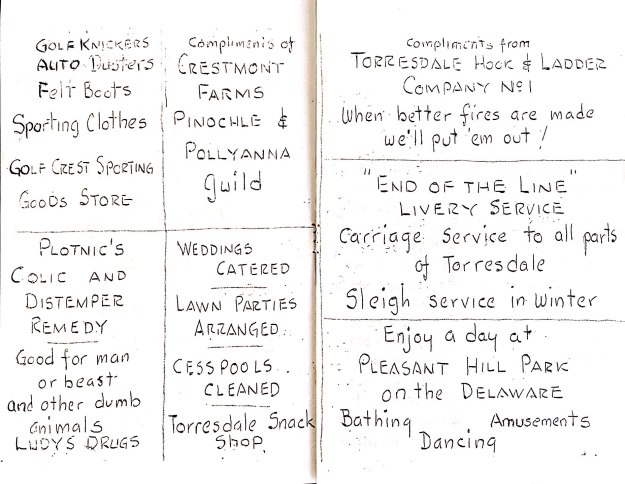 GOLF KNICKERS
AUTO Dusters
Felt Boots
Sporting Clothes
GOLF CREST SPORTING
GOODS STORE
Compliments of
CRESTMONT
FARMS
PINOCHLE &
POLLYANNA
Guild
PLOTNIC'S
COLIC AND
DISTEMPER
REMEDY
Good for man
or beast
and other dumb
animals
LUDYS DRUGS
WEDDINGS
CATERED
LAWN PARTIES
ARRANGED
CESSPOOLS
CLEANED
Torresdale Snack
SHOP
Compliments from
TORRESDALE HOOK & LADDER
COMPANY No 1
When better fires are made
we'll put 'em out!
"END OF THE LINE"
LIVERY SERVICE
Carriage Service to all parts
of Torresdale
Sleigh service in Winter
Enjoy a day at
PLEASANT HILL PARK
on the DELAWARE
Bathing Amusements
Dancing